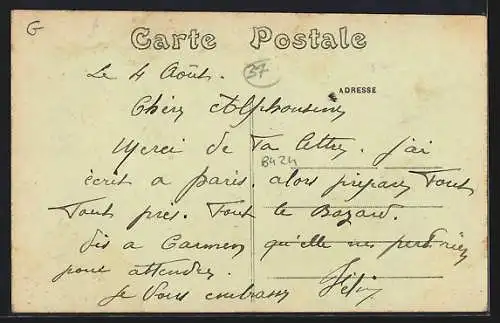 G
Carte Postale
37
Le 4 Août.
ADRESSE
Chère Alphonsine
Merci de ta lettre. j'ai
B424
écrit a paris. alors prépare tout
tout pres. tout le Bazard.
dis a Carmen qu'elle ne perd rien
pour attendre.
je vous embrasse